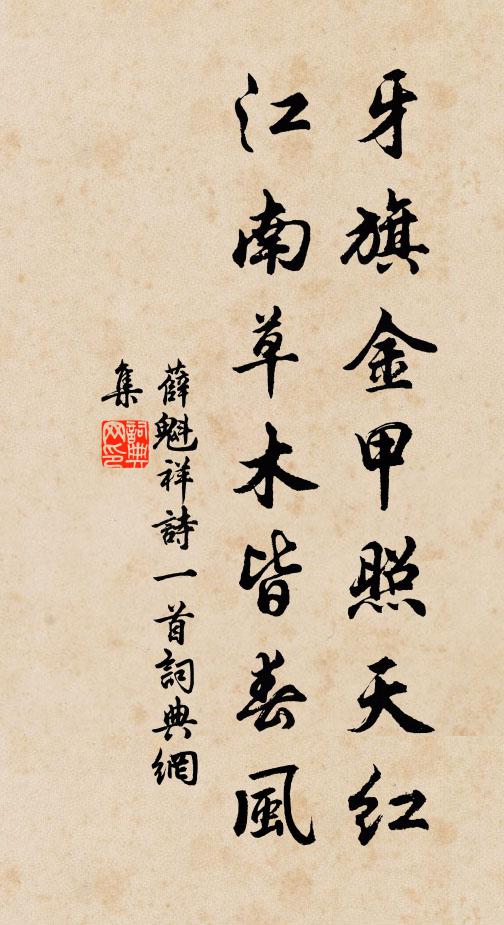 牙旗金甲照天紅
江南草木皆春風
薛魁祥詩一首詞典網
集
詞典
网印